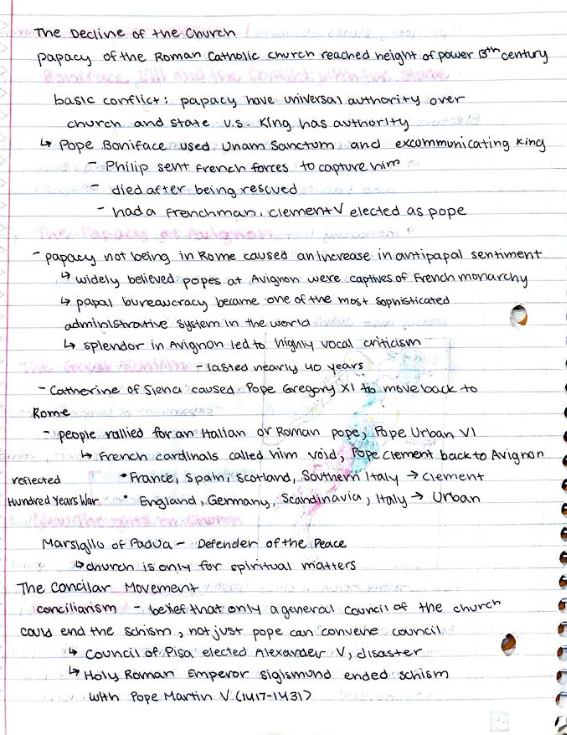 The Decline of the Church
papacy of the Roman Catholic church reached height of power 13th century
Boniface VIII and the Conflict with the State
basic conflict: papacy have universal authority over
church and state v.s. King has authority
↳ Pope Boniface used Unam Sanctum and excommunicating King
- Philip sent French forces to capture him
- died after being rescued
- had a Frenchman, Clement V elected as pope
The Papacy at Avignon
- papacy not being in Rome caused an increase in antipapal sentiment
↳ widely believed popes at Avignon were captives of French monarchy
↳ papal bureaucracy became one of the most sophisticated
administrative system in the world
↳ splendor in Avignon led to highly vocal criticism
The Great Schism - lasted nearly 40 years
- Catherine of Siena caused Pope Gregory XI to move back to
Rome
- people rallied for an Italian or Roman pope, Pope Urban VI
↳ French cardinals called him void, Pope Clement back to Avignon
reflected • France, Spain, Scotland, Southern Italy → Clement
Hundred Years War • England, Germany, Scandinavia, Italy → Urban
New Thoughts on Church
Marsiglio of Padua - Defender of the Peace
↳ church is only for spiritual matters
The Concilar Movement
conciliarism - belief that only a general council of the church
could end the schism, not just pope can convene council
↳ Council of Pisa elected Alexander V, disaster
↳ Holy Roman Emperor Sigismund ended schism
with Pope Martin V (1417-1431)